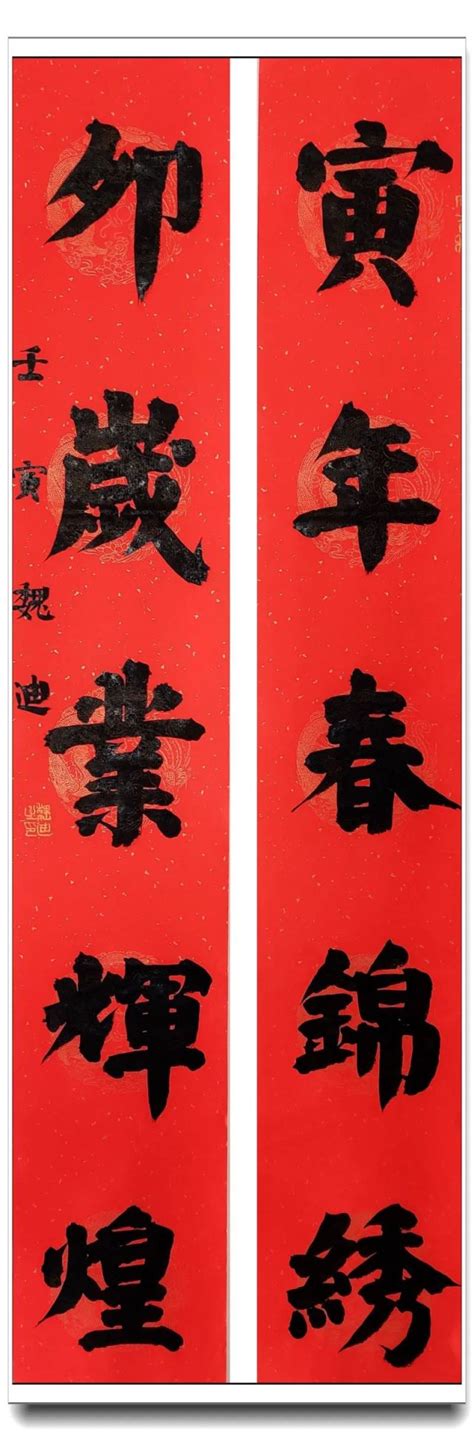 寅年春錦綉
卯歲業輝煌
壬寅魏迪